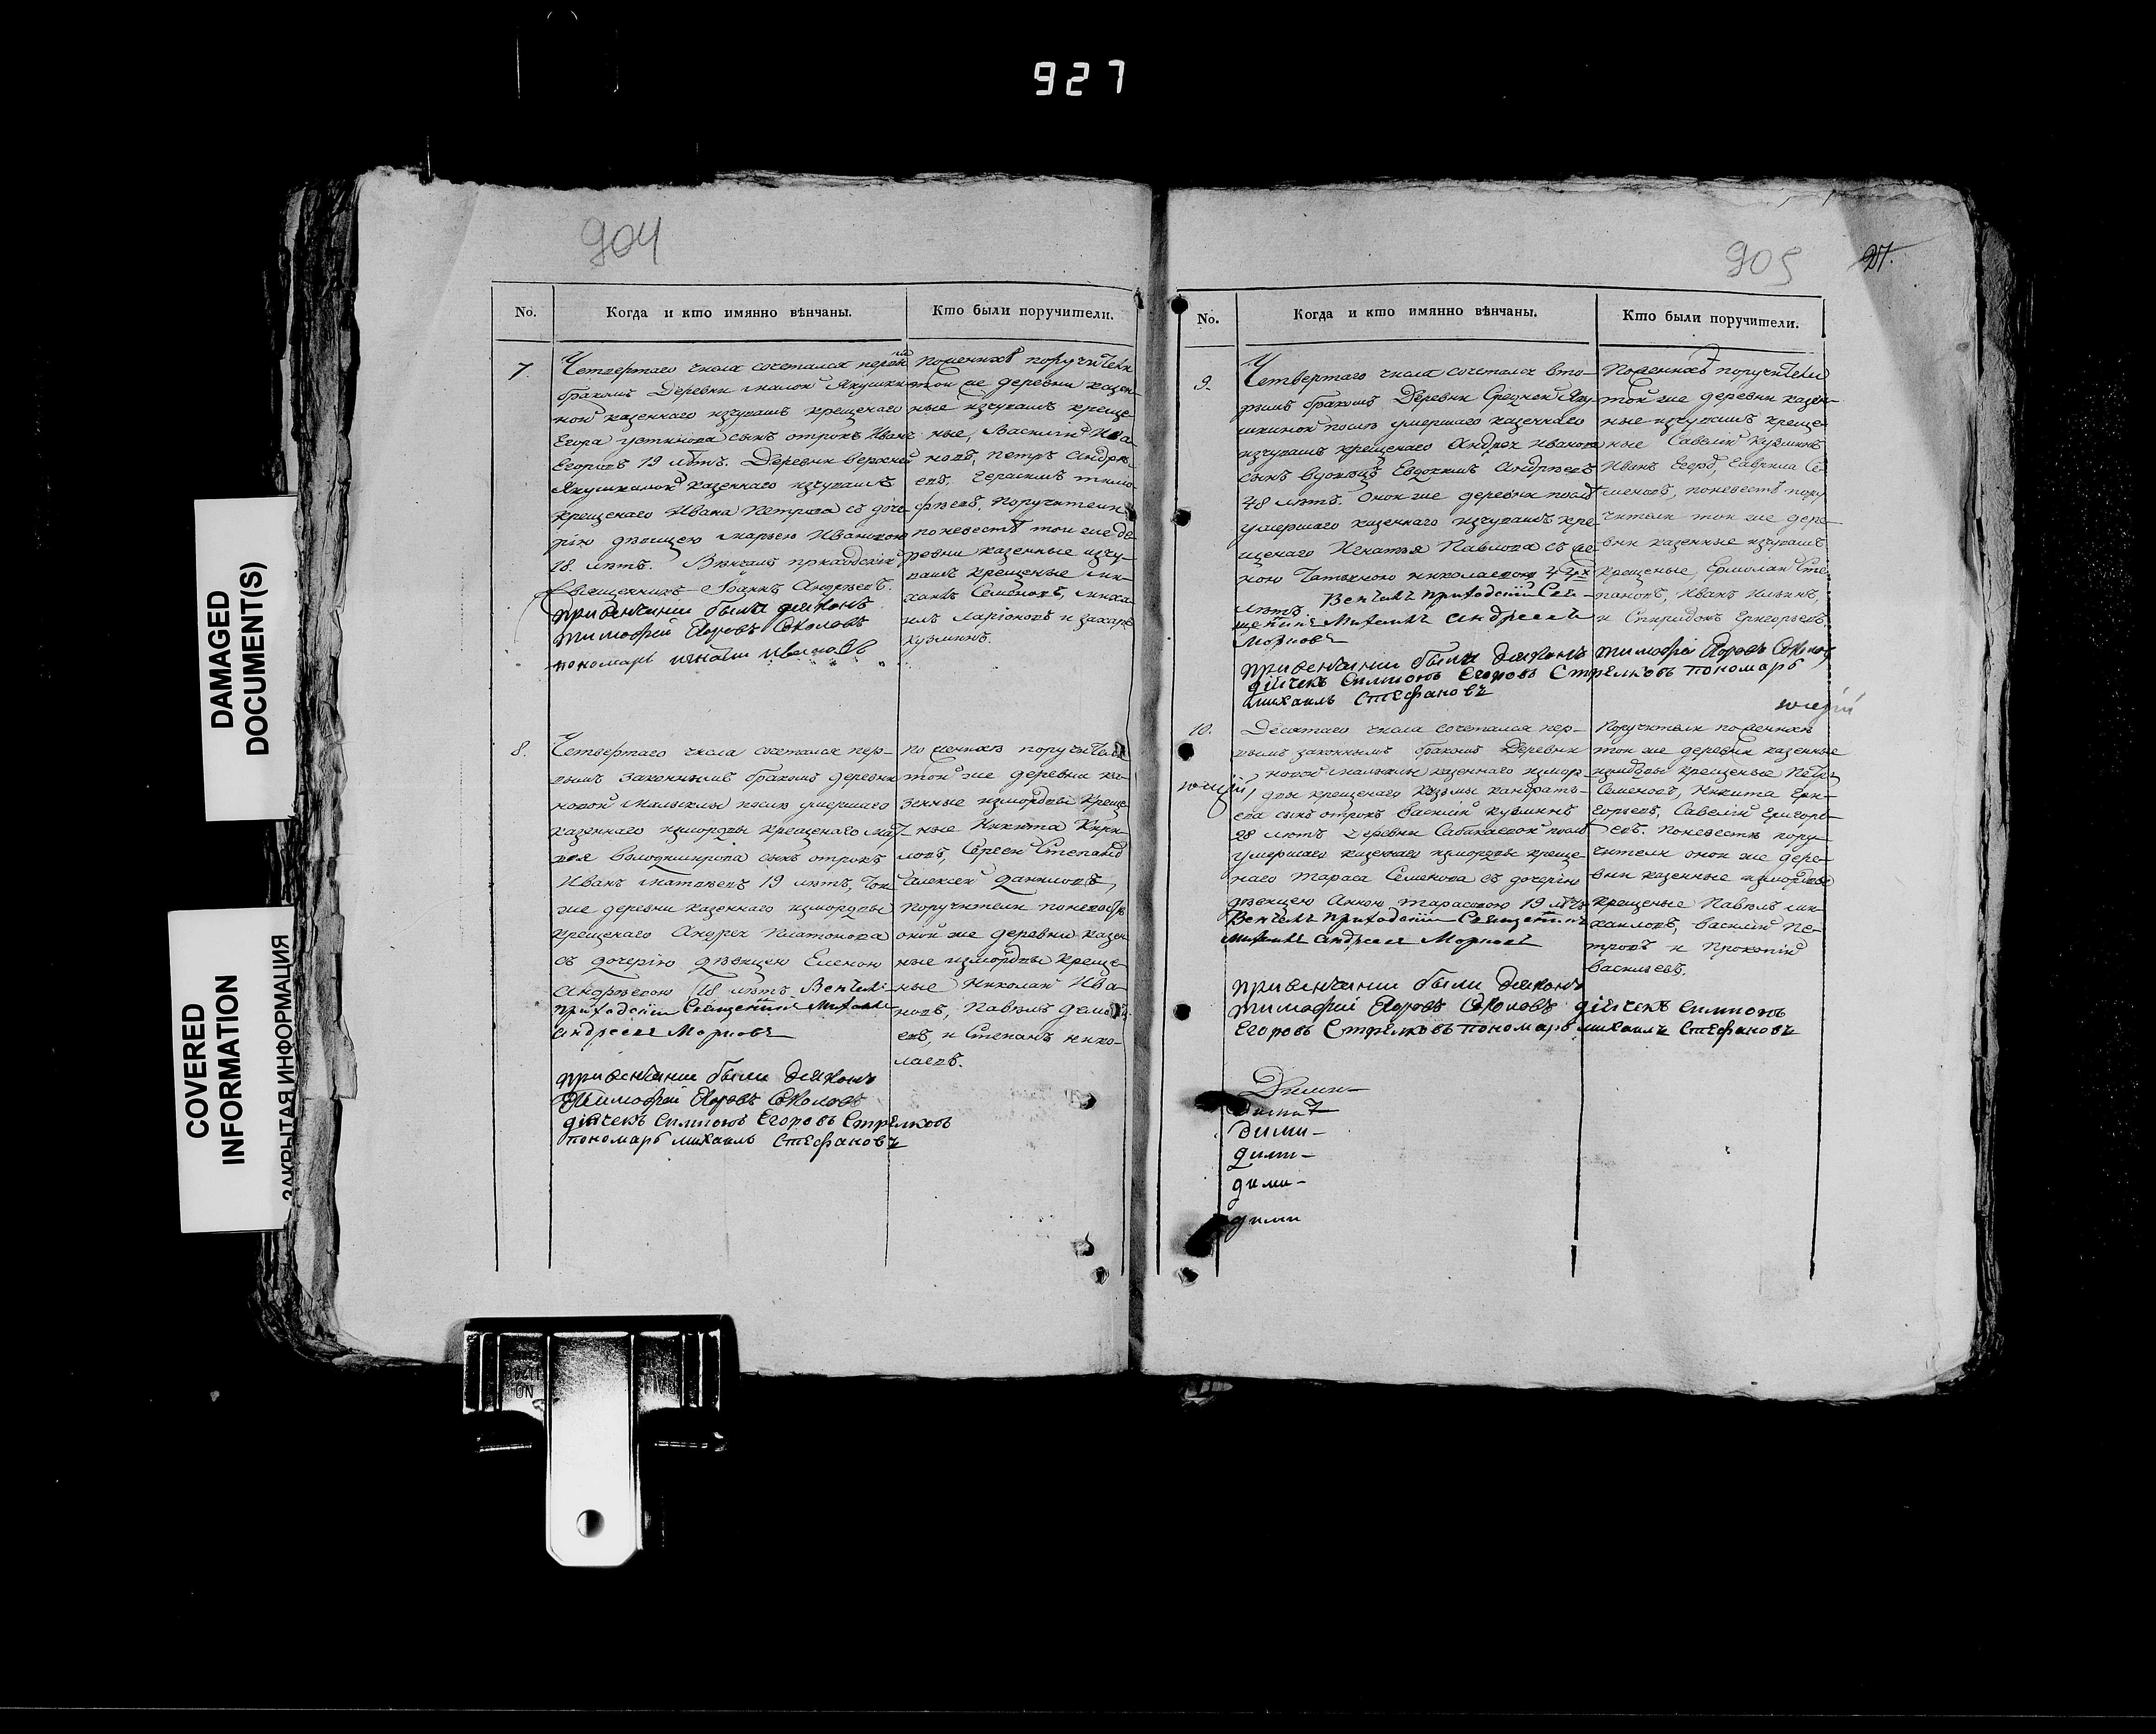 927
904
No.
Когда и кто имянно вѣнчаны.
Кто были поручители.
7.
Четвертаго числа сочетался первым
бракомъ Деревни малой Якушки-
ной казеннаго изчувашъ крещенаго
Егора устинова сынъ отрокъ Иванъ
Егоровъ 19 лѣтъ. Деревни верхней
Якушкиной казеннаго изчувашъ
крещенаго Ивана Петрова съ доче-
рію дѣвицею марьею Ивановою
18. лѣтъ. Вѣнчалъ приходскій
Священникъ Іоаннъ Андрѣевъ.
при венчании были диаконъ
тимофей Егоровъ Соколовъ
пономарь игнатий ивановъ
По женихѣ поручители
той же деревни казен-
ные изчувашъ креще-
ные, Василій Ива-
новъ, Петръ Андрѣ-
евъ, Герасимъ тимо-
фѣевъ, Поручители
по невестѣ той же де-
ревни казенные изчу-
вашъ крещеные ми-
хайлъ Семеновъ, миха-
илъ Ларіоновъ и захаръ
кузминъ.
8.
Четвертаго числа сочетался пер-
вымъ законнымъ бракомъ деревни
новой малыклы послѣ умершаго
казеннаго измордвы крещенаго мат-
вея Володимирова сынъ отрокъ
Иванъ матвѣевъ 19 лѣтъ, той
же деревни казеннаго измордвы
крещенаго Андрея Платонова
съ дочерію дѣвицею Еленою
Андрѣевою 18 лѣтъ Венчалъ
приходскій Священникъ Михаилъ
Андреевъ Морновъ
при венчании были диаконъ
Тимофей Егоровъ Соколовъ
дьячекъ Симионъ Егоровъ Стрелковъ
пономарь михаилъ Стефановъ
По женихѣ поручители
той же деревни ка-
зенные измордвы креще-
ные Никита Кири-
ловъ, Сергей Степановъ
Алексей Даниловъ,
поручители по невестѣ
оной же деревни казен-
ные измордвы креще-
ные Николай Ива-
новъ, Павелъ
евъ, и Степанъ нико-
лаевъ.
905
27.
No.
Когда и кто имянно вѣнчаны.
Кто были поручители.
9.
Четвертаго числа сочетался вто-
рымъ бракомъ Деревни Средней Яку-
шкиной послѣ умершаго казеннаго
изчувашъ крещенаго Андрея Иванова
сынъ вдовецъ Евдокимъ Андрѣевъ
48 лѣтъ. Оной же деревни послѣ
умершаго казеннаго изчувашъ кре-
щенаго Игнатья Павлова съ же-
ною Татьяною николаевою 42х
лѣтъ. Венчалъ приходскій Свя-
щенникъ Михаилъ Андреевъ
Морновъ
при венчании были диаконъ тимофей Егоровъ Соколовъ
дьячекъ Симионъ Егоровъ Стрелковъ пономарь
михаилъ Стефановъ
По женихѣ поручители
той же деревни казен-
ные изчувашъ креще-
ные Савелій кузминъ
Иванъ Егоровъ, Гаврила Се-
меновъ, по невестѣ пору-
чители той же дере-
вни казенные изчувашъ
крещеные, Ермолай Сте-
пановъ, Иванъ Ильинъ,
и Спиридонъ Григорьевъ.
10.
Десятаго числа сочетался пер-
вымъ законнымъ бракомъ Деревни
новой малыклы казеннаго измор-
двы крещенаго Козьмы Кондрать-
ева сынъ отрокъ Василій кузминъ
28 лѣтъ Деревни Сабакаевой послѣ
умершаго казеннаго измордвы креще-
наго Тараса Семенова съ дочерію
дѣвицею Анною тарасовою 19 лѣтъ
Венчалъ приходскій Священникъ
Михаилъ Андреевъ Морновъ
при венчании были диаконъ
тимофей Егоровъ Соколовъ дьячекъ Симионъ
Егоровъ Стрелковъ пономарь михаилъ Стефановъ
Поручители по женихѣ
той же деревни казенные
измордвы крещеные Петръ
Семеновъ, Никита Гри-
горьевъ, Савелій Григорь-
евъ. По невестѣ пору-
чители оной же дере-
вни казенные измордвы
крещеные Павелъ ми-
хайловъ, василій Пе-
тровъ и Прокопій
васильевъ.
дими-
дими-
дими-
дими
DAMAGED
DOCUMENT(S)
COVERED
INFORMATION
ЗАКРЫТАЯ ИНФОРМАЦИЯ